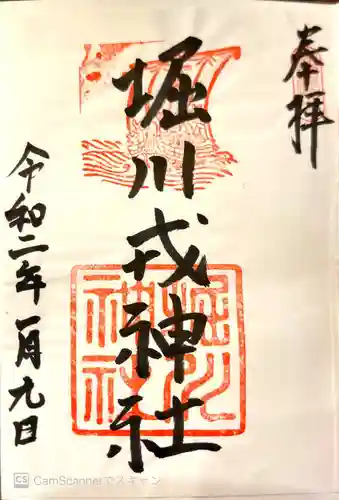 奉拝
堀川戎神社
令和二年一月九日
堀川
神社
CS CamScannerでスキャン